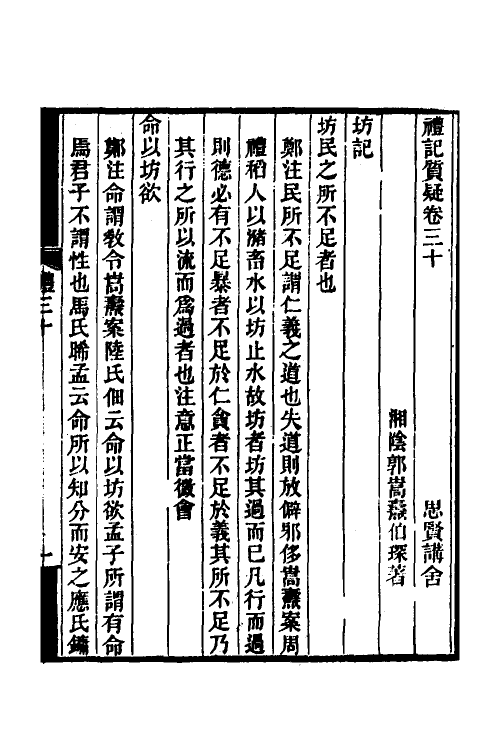 禮記質疑卷三十 思賢講舍
湘陰郭嵩燾伯琛著
坊記
坊民之所不足者也
鄭注民所不足謂仁義之道也失道則放僻邪侈嵩燾案周
禮稻人以瀦畜水以坊止水故坊者坊其過而已凡行而過
則德必有不足暴者不足於仁貪者不足於義其所不足乃
其行之所以流而爲過者也注意正當微會
命以坊欲
鄭注命謂敎令嵩燾案陸氏佃云命以坊欲孟子所謂有命
焉君子不謂性也馬氏晞孟云命所以知分而安之應氏鏞
禮三十 一